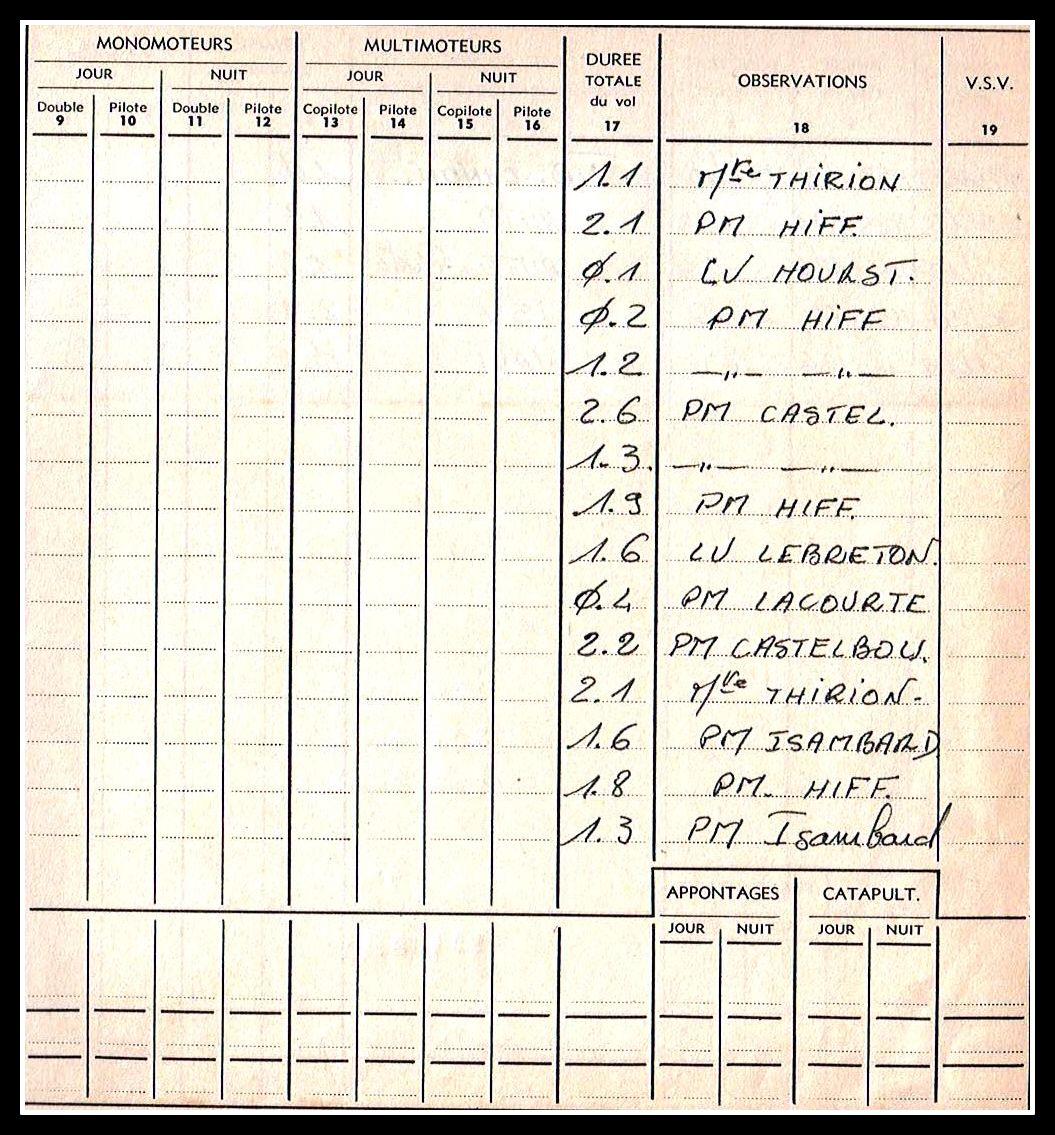 MONOMOTEURS MULTIMOTEURS DUREE TOTALE du vol OBSERVATIONS V.S.V.
JOUR NUIT JOUR NUIT
Double Pilote Double Pilote Copilote Pilote Copilote Pilote
9 10 11 12 13 14 15 16 17 18 19
1.1 Mre THIRION
2.1 PM HIFF.
Ø.1 LV HOURST.
Ø.2 PM HIFF
1.2 —"— —"—
2.6 PM CASTEL.
1.3. —"— —"—
1.9 PM HIFF.
1.6 LV LEBRETON.
Ø.4 PM LACOURTE
2.2 PM CASTELBOU.
2.1 Mre THIRION-
1.6 PM ISAMBARD
1.8 PM. HIFF.
1.3 PM Isambard
APPONTAGES CATAPULT.
JOUR NUIT JOUR NUIT